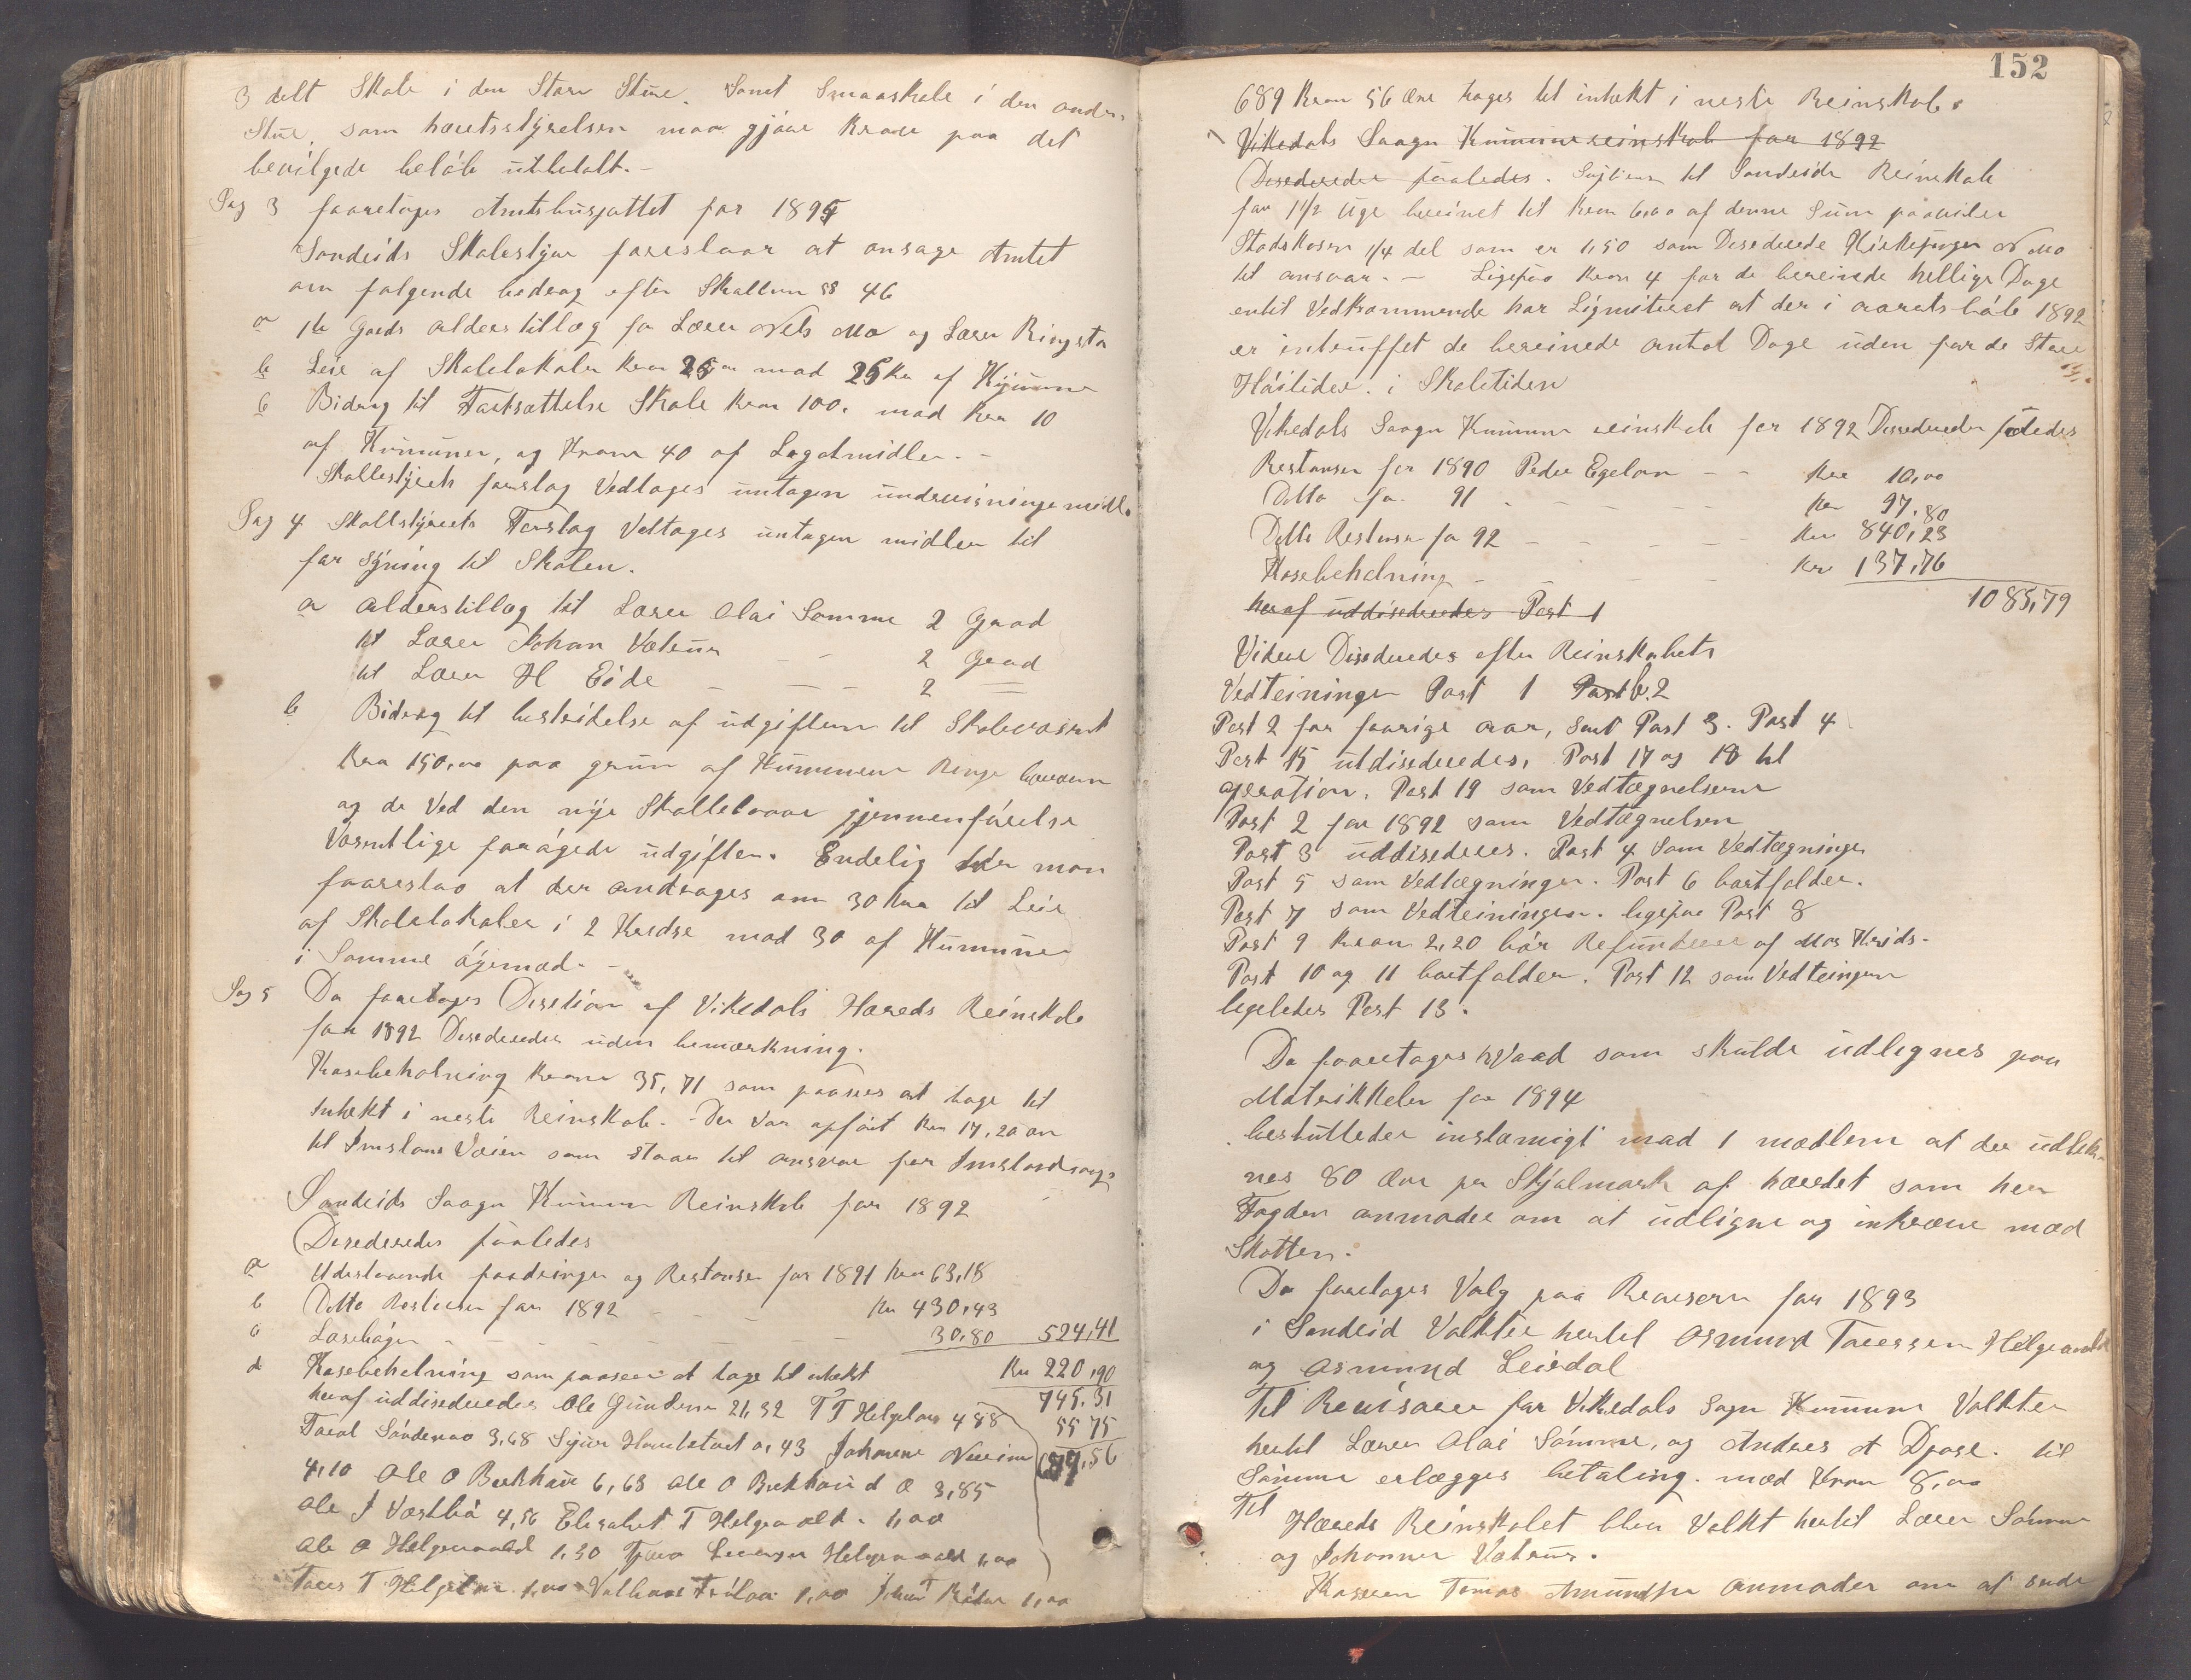 3 delt Skole i den Store Stue. Samt Smaaskole i den anden
Stue, som heretsstyrelsen maa gjøre krav paa det
bevilgede beløb utbetalt. -
Sag 3 foretages Amtsbusjattet for 1895
Sandeids Skolestyre foreslaar at ansøge Amtet
om følgende bedrag efter Skolloven §§ 46
a 1te Grads alderstillæg for Lærer Nels Mo og Lærer Ringsta
b Leie af Skolelokaler Kron 25,00 mod 25 Kr af Kommune
c Bidrag til Fortsættelse Skole Kron 100. mod Kro 10
af Kommunen, og Krone 40 af Legatmidler. -
Skollestyrets forslag Vedtages
Sag 4 Skollstyrets Forslag Vedtages untagen midler til
for Syning til Skolen.
a Alderstillæg til Lærer Olai Sømme 2 Grad
til Lærer Johan Vatum - - 2 Grad
til Lærer H Eide - - - 2 =
b Bidrag til bestridelse af udgifterne til Skolevæsnet
Kro 150,00 paa grun af Kommunens
og de Ved den nye Skollelovs gjennemførelse
Væsentlige forøgede udgifter. Endelig man
foreslaa at der andrages om 30 Kro til Leie
af Skolelokaler i 2 Kredse mod 30 af Kommune
i Samme øyemed. -
Sag 5 Da foretages Desition af Vikedals Hereds Reinskab
for 1892 Desederedes uden bemærkning.
Kasebeholning Krone 35,71 som paasees at tage til
Intekt i neste Reinskab. - Der Var opført Kro 17,20 øre
til Imslans Veien som staar til ansvar for
Sandeids Saagn Kommune Reinskab for 1892
Desederedes saaledes
a Udestaaende fordringer og Restanser for 1891 Kro 63,18
b Dotto Restanser for 1892 - - - Kr 430,43
c - - - - 30,80 524,41
d Kasebeholning som paasees at tage til intekt Kr 220,90
745,31
heraf uddisederedes Ole Gundersen 21,32 T T Helgeland 4 88 55 75
Sigur 0,43 Johannes 689,56
4,10 Ole O Birkhaug 6,63 Ole O Birkhaug d O 3,85
Ole J Vestbø 4,56 Elisabet T Helgevold - 1,00
Ole O Helgevold 1,30 Helgevold 1,00
Tores T 1,00 Valborg 1,00 1,00
152
689 Kron 56 Øre tages til intekt i neste Reinskab.
Vikedals Saagn Kommunereinskab for 1892
Desederedes saaledes. til Sandeids Reinskab
for 1 1/2 Uge bereinet til Kron 6,00 af denne Sum paaviler
Stadskasen 1/4 del som er 1,50 som Desederede Kirkesanger N Mo
til ansvar. - Ligesaa Kron 4 for de bereinede hellige Dage
entil Vedkommende har Ligmiteret at der i aarets løb 1892
er intruffet de bereinede antal Dage uden for de Store
Høitider. i Skoletiden
Vikedals Saagn Kommune reinskab for 1892 Dessederedes saaledes
Restanser for 1890 Peder Egelan - - Kro 10,00
Dotto for 91 - - - - Kr 97,80
Dotto Restanser for 92 - - - - Kro 840,23
Kasebeholning - - - - Kr 137,76
heraf uddisederedes Post 1 1085,79
Videre Disederedes efter Reinskabets
Vedteininger Post 1 Post b.2
Post 2 for forrige aar, Samt Post 3. Post 4
Post 15 utdisederedes, Post 17 og 18 til
Post 19 som Vedtægnelserne
Post 2 for 1892 som Vedtægnelsen
Post 3 uddisederes. Post 4 som Vedtægninge
Post 5 som Vedtægningen. Post 6 bortfalder.
Post 7 som Vedteiningen. ligesaa Post 8
Post 9 Kron 2,20 bør Refunderes af Mos Kreds.
Post 10 og 11 bortfalder. Post 12 som Vedteingen
ligeledes Post 13.
Da foretages hVaad som skulde udlignes paa
Matrikkelen for 1894
besluttedes enstemigt mod 1 medlem at der udlik-
nes 80 Øre pr Skjolmark af heredet som herr
Fogden anmodes om at udligne og inkræve med
Skatten.
Da foretages Valg paa Reviserer for 1893
i Sandeid Valktes hertil Osmund Toressen Helgevold
og Osmund Leirdal
Til Revisorer for Vikedals Sogn Kommune Valktes
hertil Lærer Olai Sømme, og Andreas A Djose. til
Sømme erlægges betaling. med Kron 8,00
Til Hereds Reinskabet blev Valkt hertil Lærer Sømme
og Johannes Vatum.
Kasseren Tomas Amundsen anmodes om at